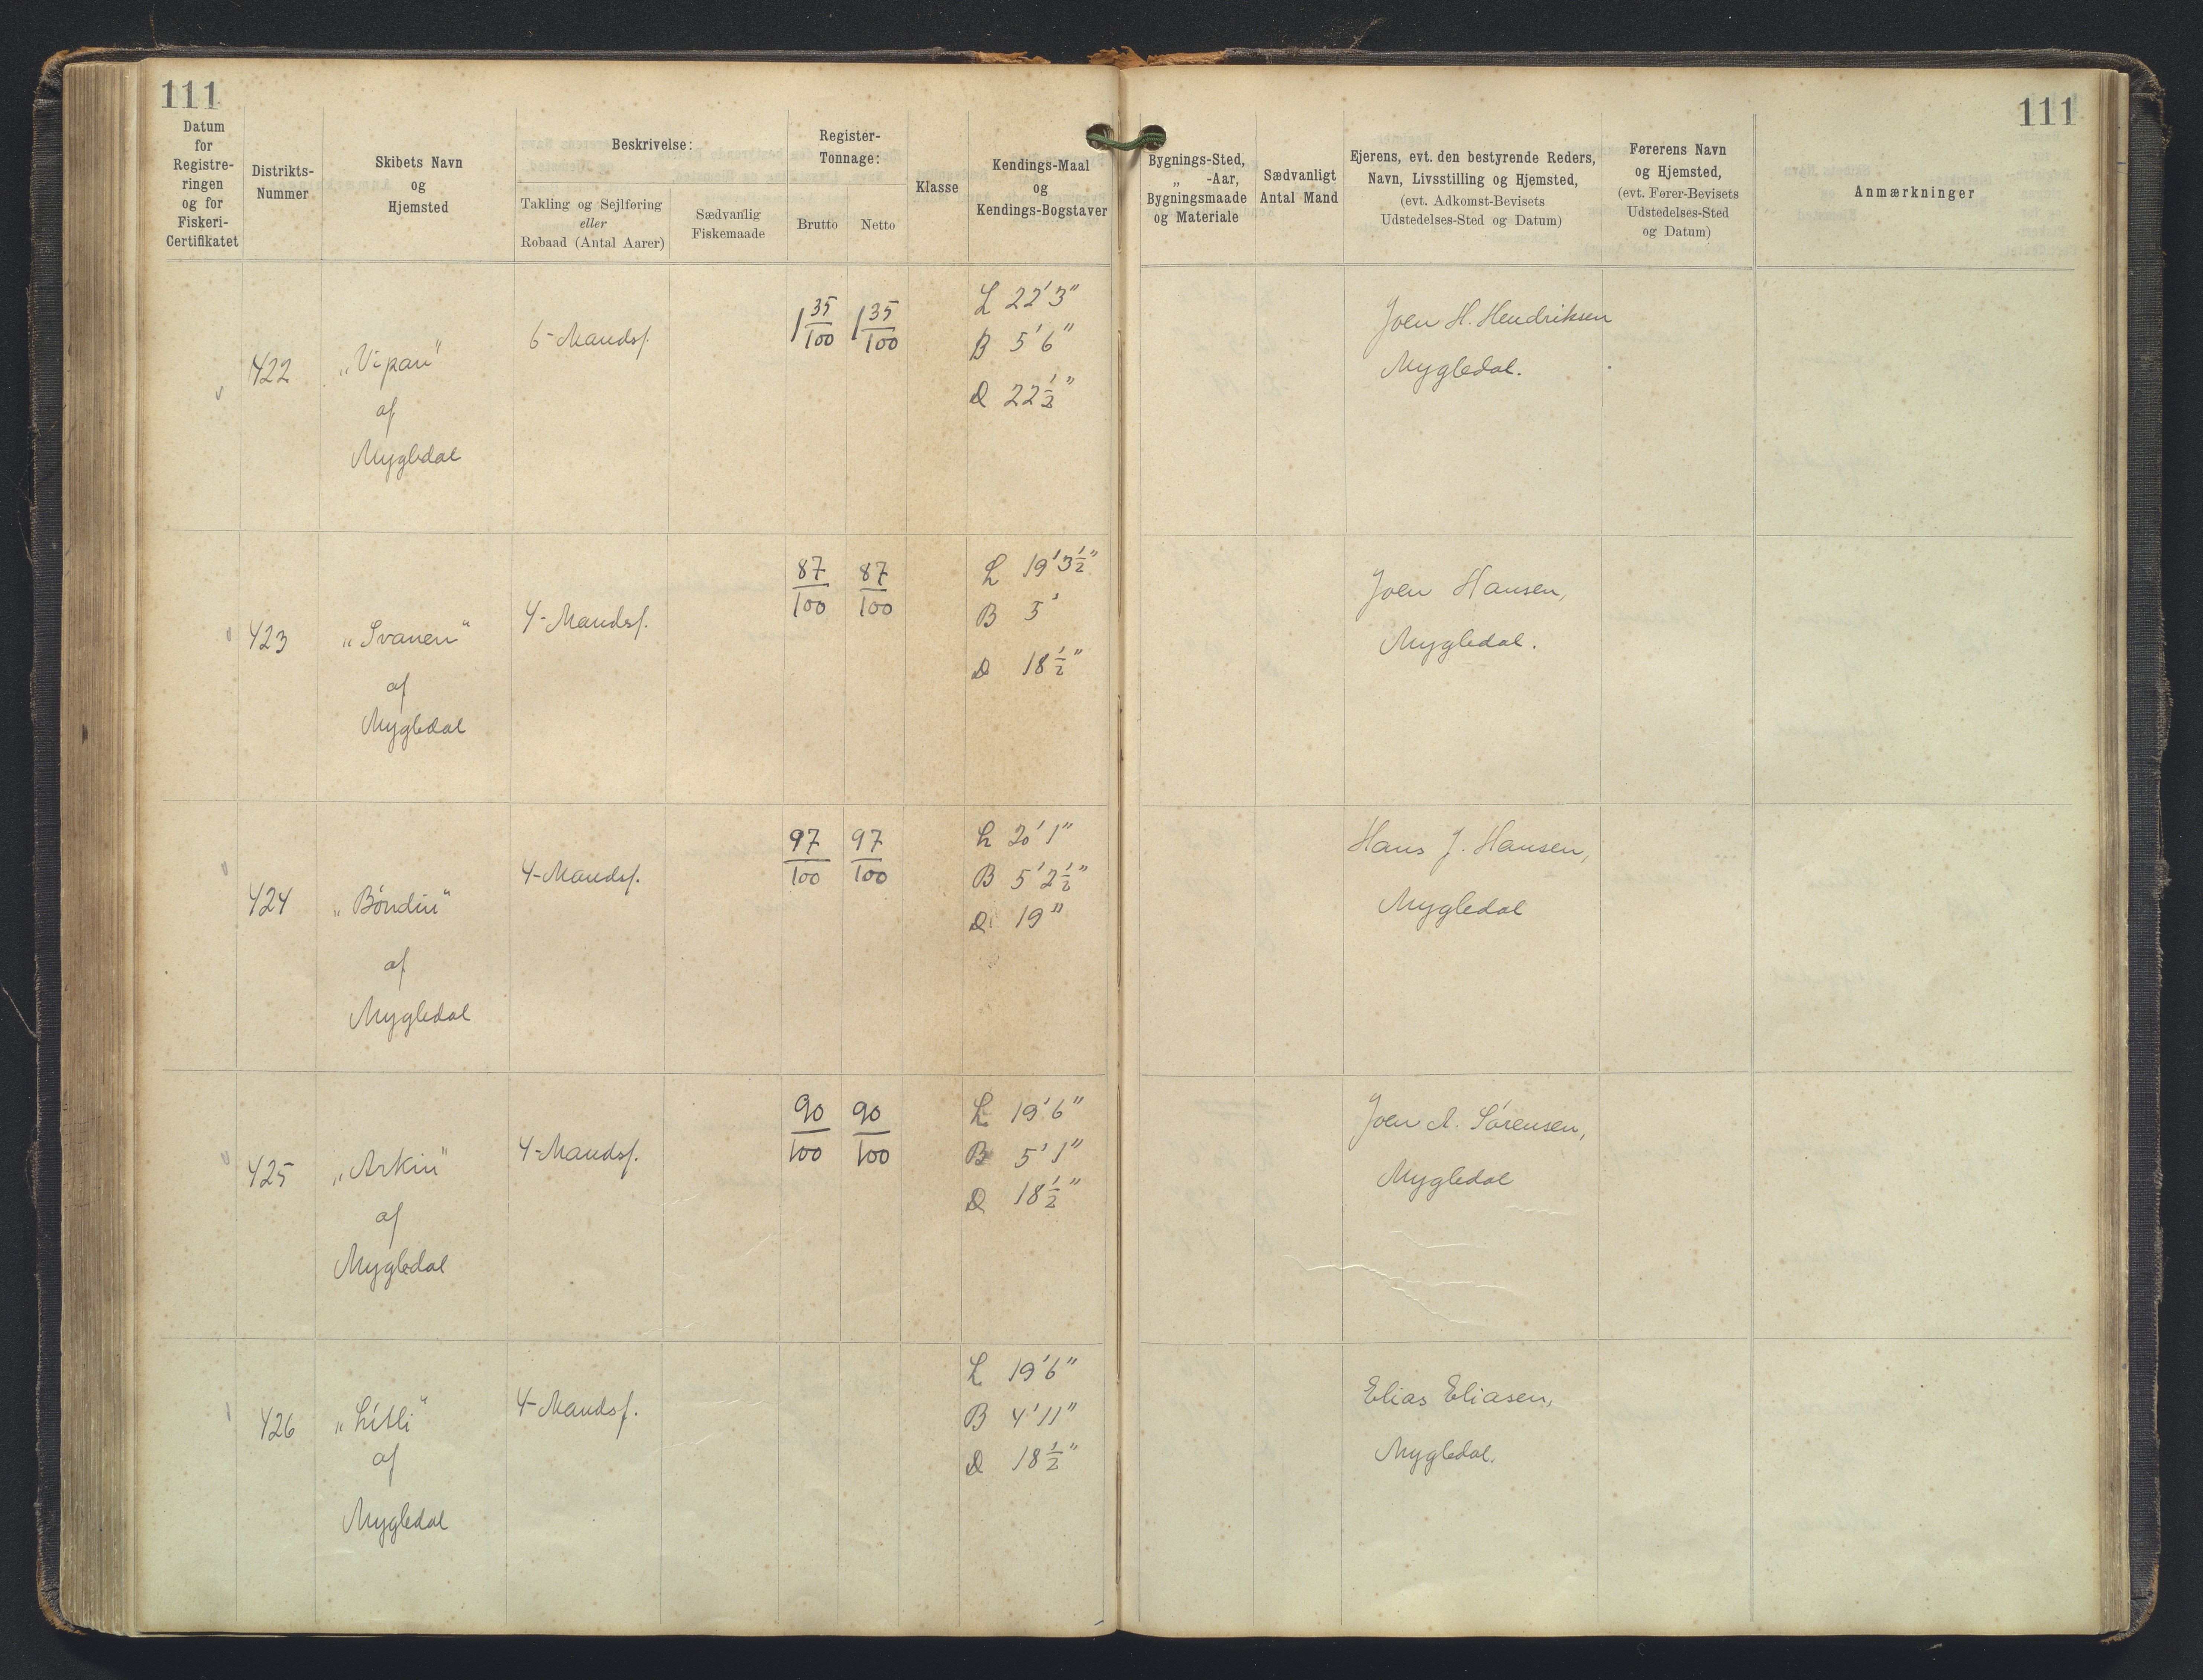 111
111
Datum
for
Registre-
ringen
og for
Fiskeri-
Certifikatet
Distrikts-
Nummer
Skibets Navn
og
Hjemsted
Beskrivelse:
Takling og Sejlføring
eller
Robaad (Antal Aarer)
Sædvanlig
Fiskemaade
Register-
Tonnage:
Brutto
Netto
Klasse
Kendings-Maal
og
Kendings-Bogstaver
Bygnings-Sted,
„ -Aar,
Bygningsmaade
og Materiale
Sædvanligt
Antal Mand
Ejerens, evt. den bestyrende Reders,
Navn, Livsstilling og Hjemsted,
(evt. Adkomst-Bevisets
Udstedelses-Sted og Datum)
Førerens Navn
og Hjemsted,
(evt. Fører-Bevisets
Udstedelses-Sted
og Datum)
Anmærkninger
422
„Vipan"
af
Mygledal
6-Mandsf.
1 35/100
1 35/100
L 22' 3"
B 5' 6"
D 22 1/2"
Joen H. Hendriksen
Mygledal.
423
„Svanen"
af
Mygledal
4-Mandsf.
87/100
87/100
L 19' 3 1/2"
B 5'
D 18 1/2"
Joen Hansen,
Mygledal.
424
„Bóndin"
af
Mygledal
4-Mandsf.
97/100
97/100
L 20' 1"
B 5' 2 1/2"
D 19"
Hans J. Hansen,
Mygledal
425
„Arkin"
af
Mygledal
4-Mandsf.
90/100
90/100
L 19' 6"
B 5' 1"
D 18 1/2"
Joen A. Sørensen,
Mygledal
426
„Lítli"
af
Mygledal
4-Mandsf.
L 19' 6"
B 4' 11"
D 18 1/2"
Elias Eliasen,
Mygledal.